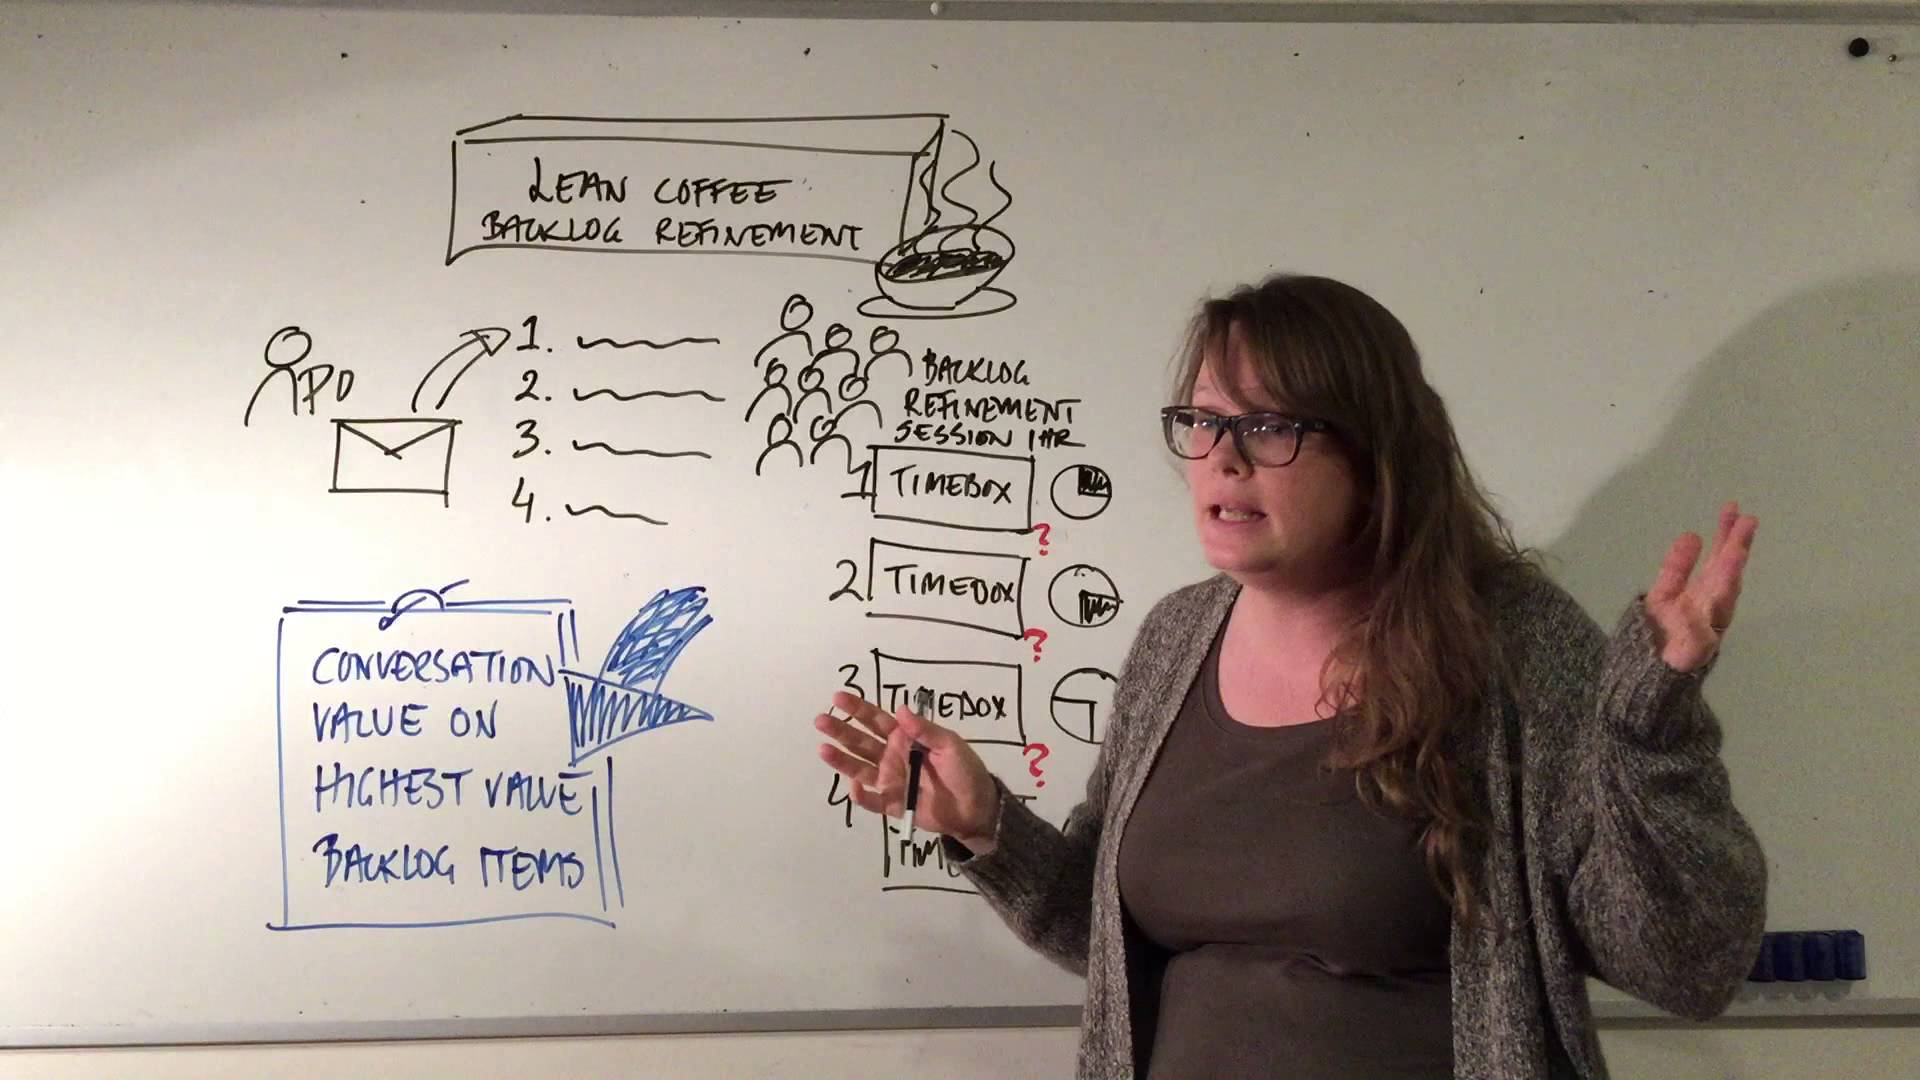 LEAN COFFEE
BACKLOG REFINEMENT
PO
1.
2.
3.
4.
BACKLOG
REFINEMENT
SESSION 1HR
1 TIMEBOX
?
2 TIMEBOX
?
3 TIMEBOX
?
4
CONVERSATION
VALUE ON
HIGHEST VALUE
BACKLOG ITEMS